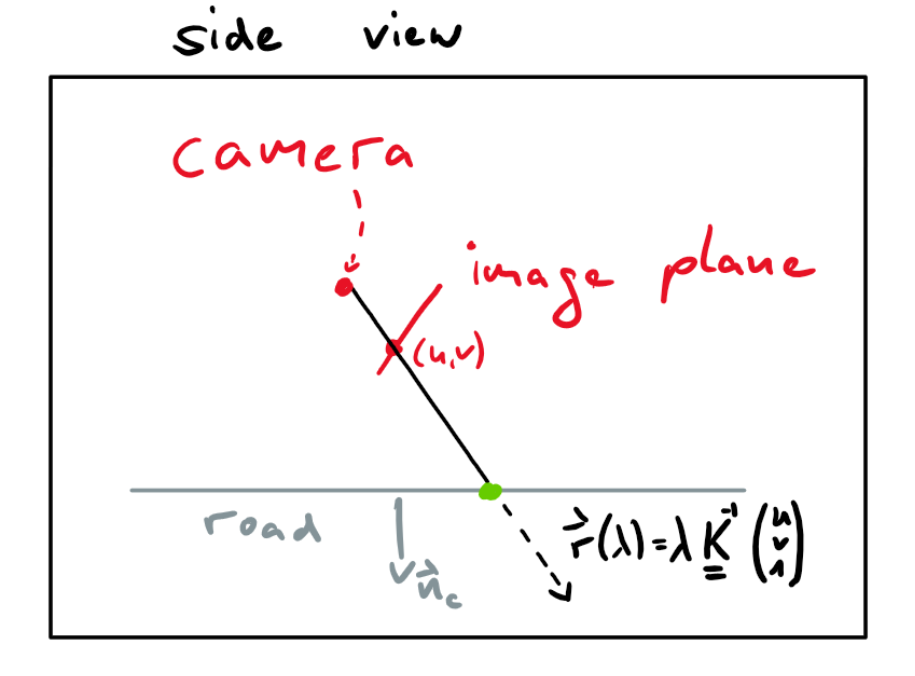 side view
camera
image plane
(u,v)
road
n⃗c
r⃗(λ)=λ K⁻¹ (u v 1)